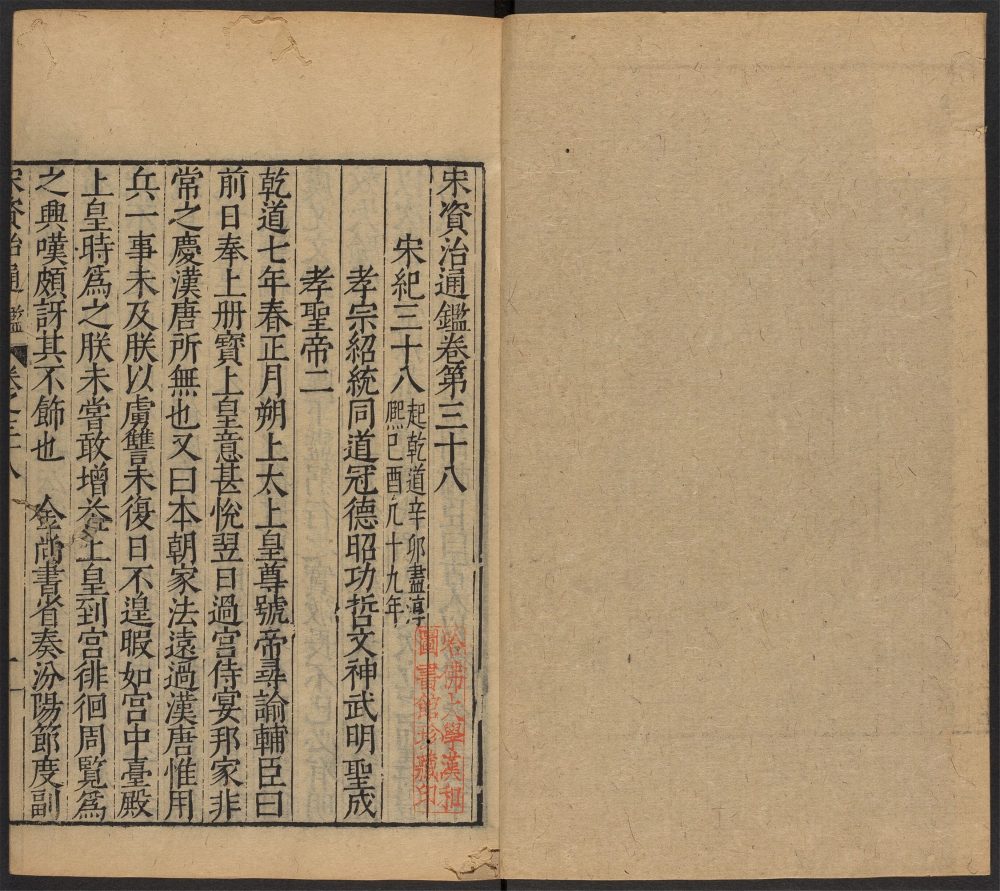 宋資治通鑑卷第三十八
宋紀三十八
起乾道辛卯盡淳
熙己酉凢十九年
孝宗紹統同道冠德昭功哲文神武明聖成
孝聖帝二
乾道七年春正月朔上太上皇尊號帝尋諭輔臣曰
前日奉上册寶上皇意甚悅翌日過宮侍宴邦家非
常之慶漢唐所無也又曰本朝家法遠過漢唐惟用
兵一事未及朕以虜讐未復日不遑暇如宮中臺殿
上皇時爲之朕未嘗敢增益上皇到宮徘徊周覽爲
之興嘆頗訝其不飾也　金尚書省奏汾陽節度副
宋資治通鑑 卷之三十八 一
哈佛大學漢和
圖書館珍藏印